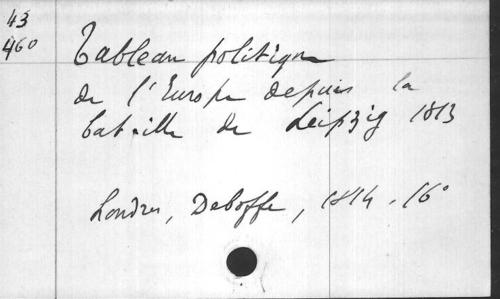 43
460
Tableau politique
de l'Europe depuis la
bataille de Leipzig 1813
Londres, Deboffe, 1814. 16°